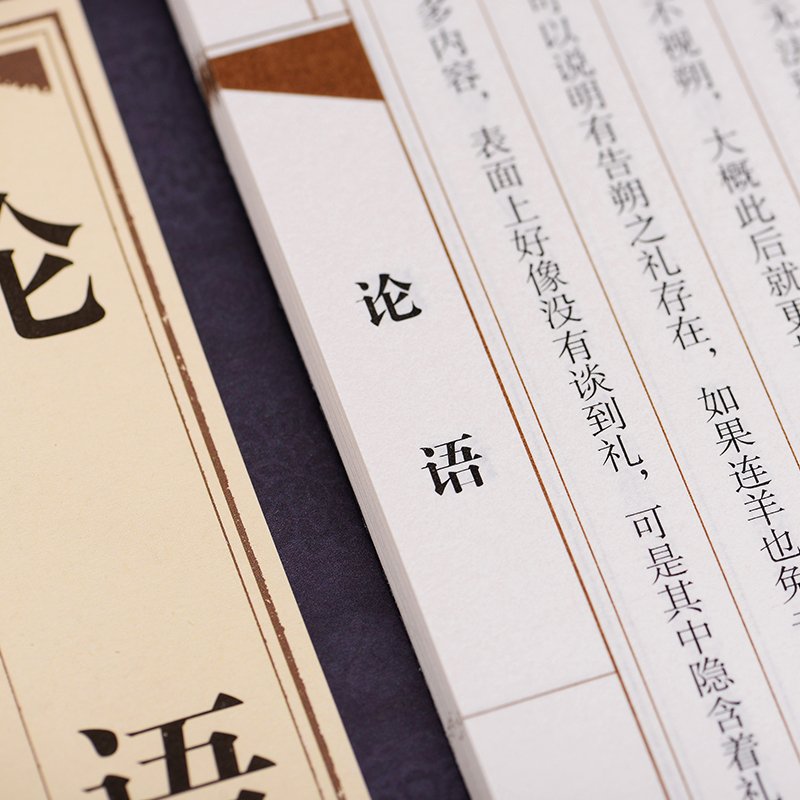 无法
不视朔，大概此后就更
可以说明有告朔之礼存在，如果连羊也免
多内容，表面上好像没有谈到礼，可是其中隐含着礼
论语
论语